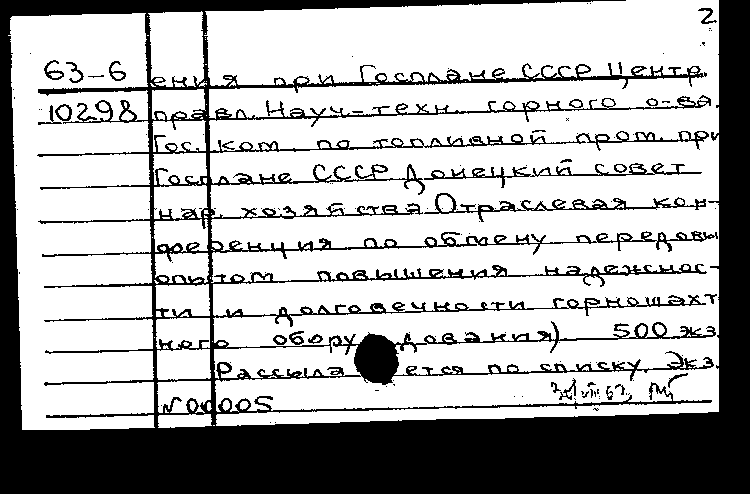 2
63-6 ения при Госплане СССР Центр.
10298 правл. Науч-техн. горного о-ва.
Гос. ком. по топливной пром. при
Госплане СССР Донецкий совет
нар. хозяйства Отраслевая кон-
ференция по обмену передовы
опытом повышения надежнос-
ти и долговечности горношахт
ного оборудования) 500 экз.
Рассылается по списку. Экз.
№00005